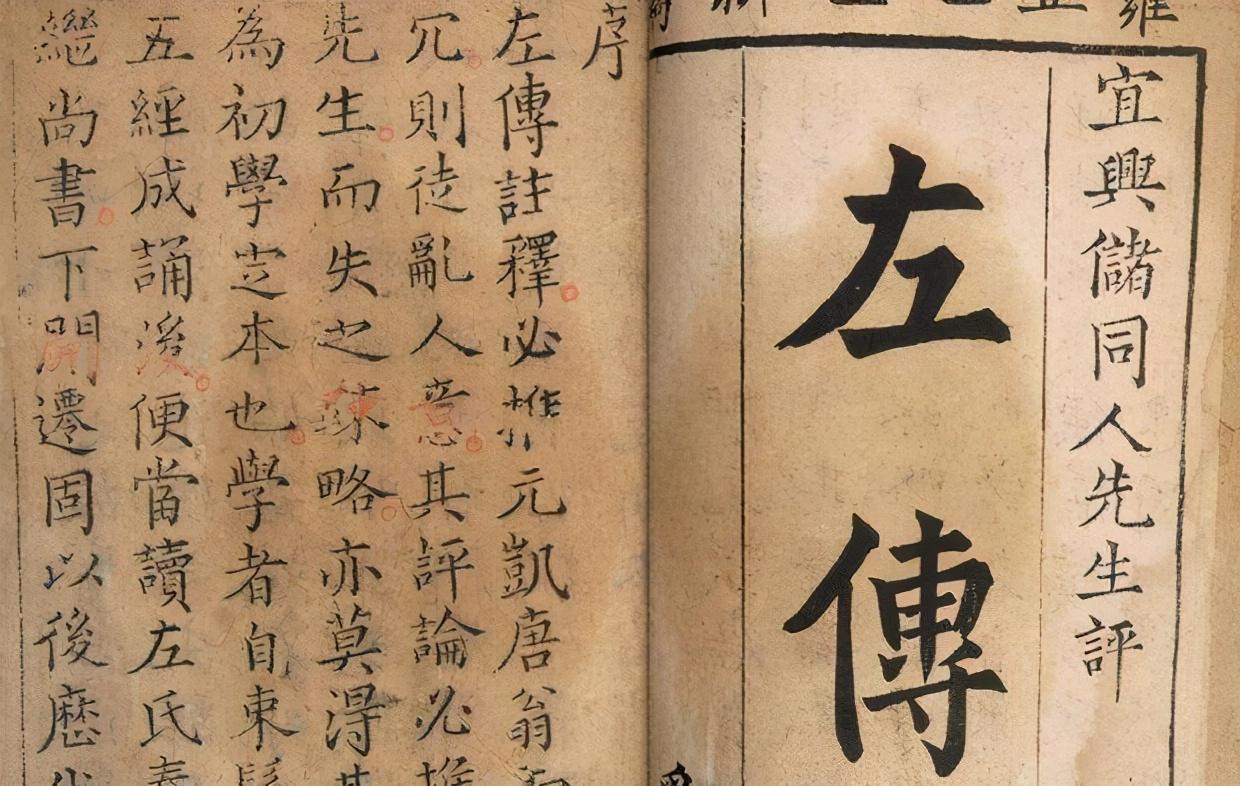 宜興儲同人先生評
左傳
序
左傳註釋必推元凱唐翁
冗則徒亂人意其評論必推
先生而失之踈略亦莫得其
為初學㝎本也學者自束
五經成誦後便當讀左氏春
繼尚書下開遷固以後歷